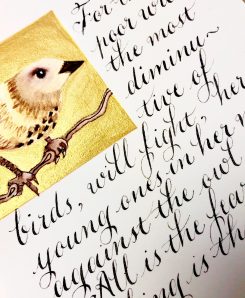 For the
poor wre
the most
diminu~
tive of
birds, will fight, her
young ones in her n
against the owl
All is the fea
hing is th